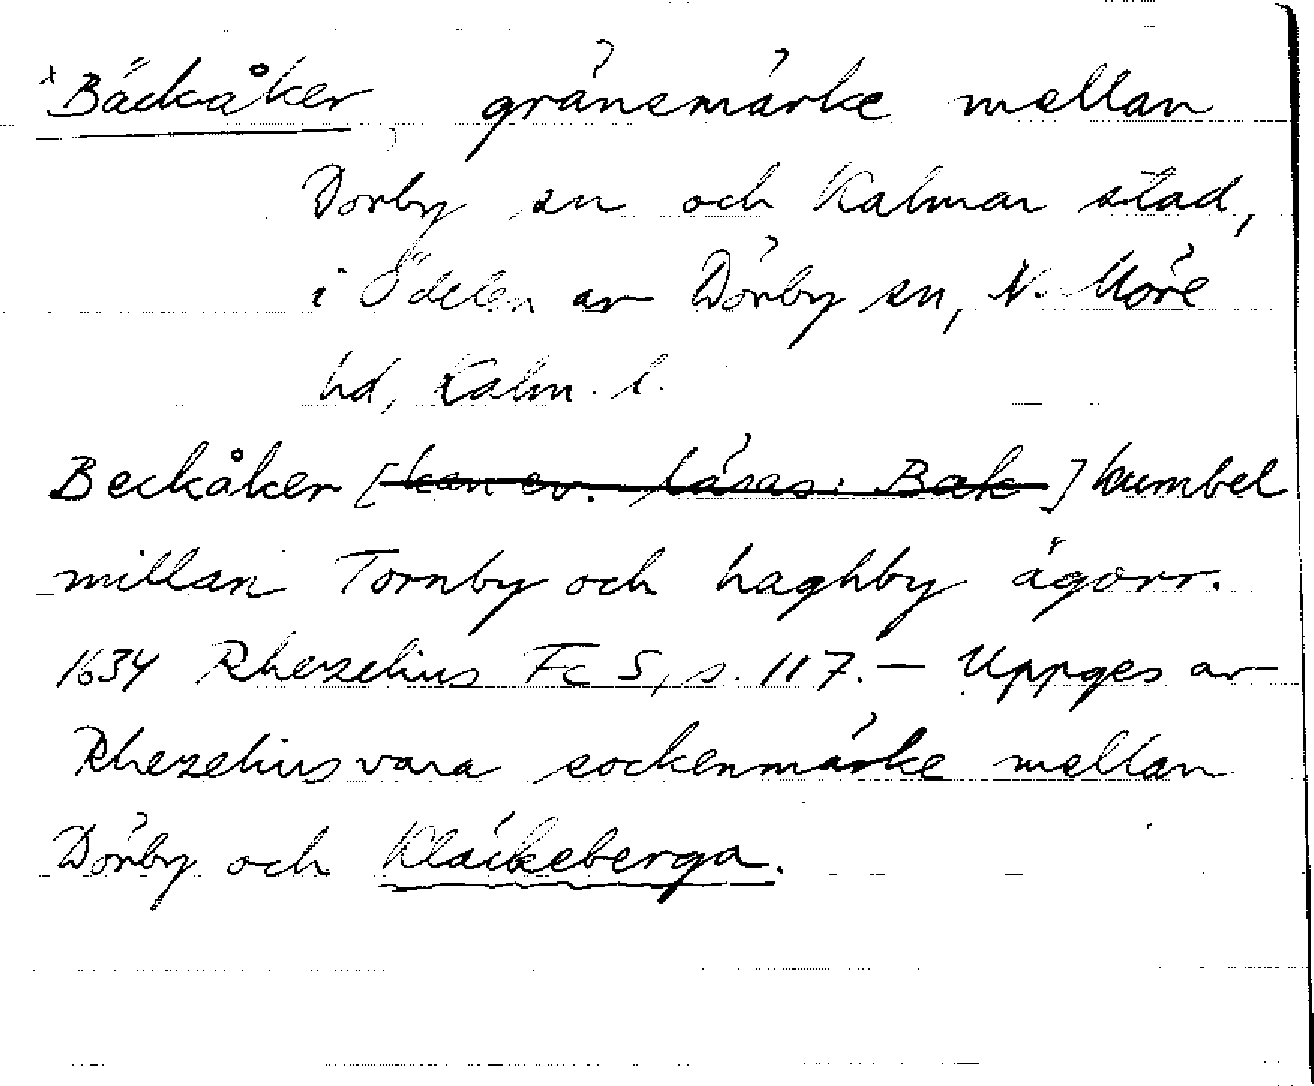 *Bäckåker, gränsmärke mellan
Dörby sn och Kalmar stad,
i Ödelen av Dörby sn, N. Möre
hd, Kalm. l.
Beckåker [kan ev. läsas: Bak] kumbel
millan Tornby och haghby ägorr.
1634 Rhezelius Fc 5, s. 117. — Uppges av
Rhezelius vara sockenmärke mellan
Dörby och Kläckeberga.